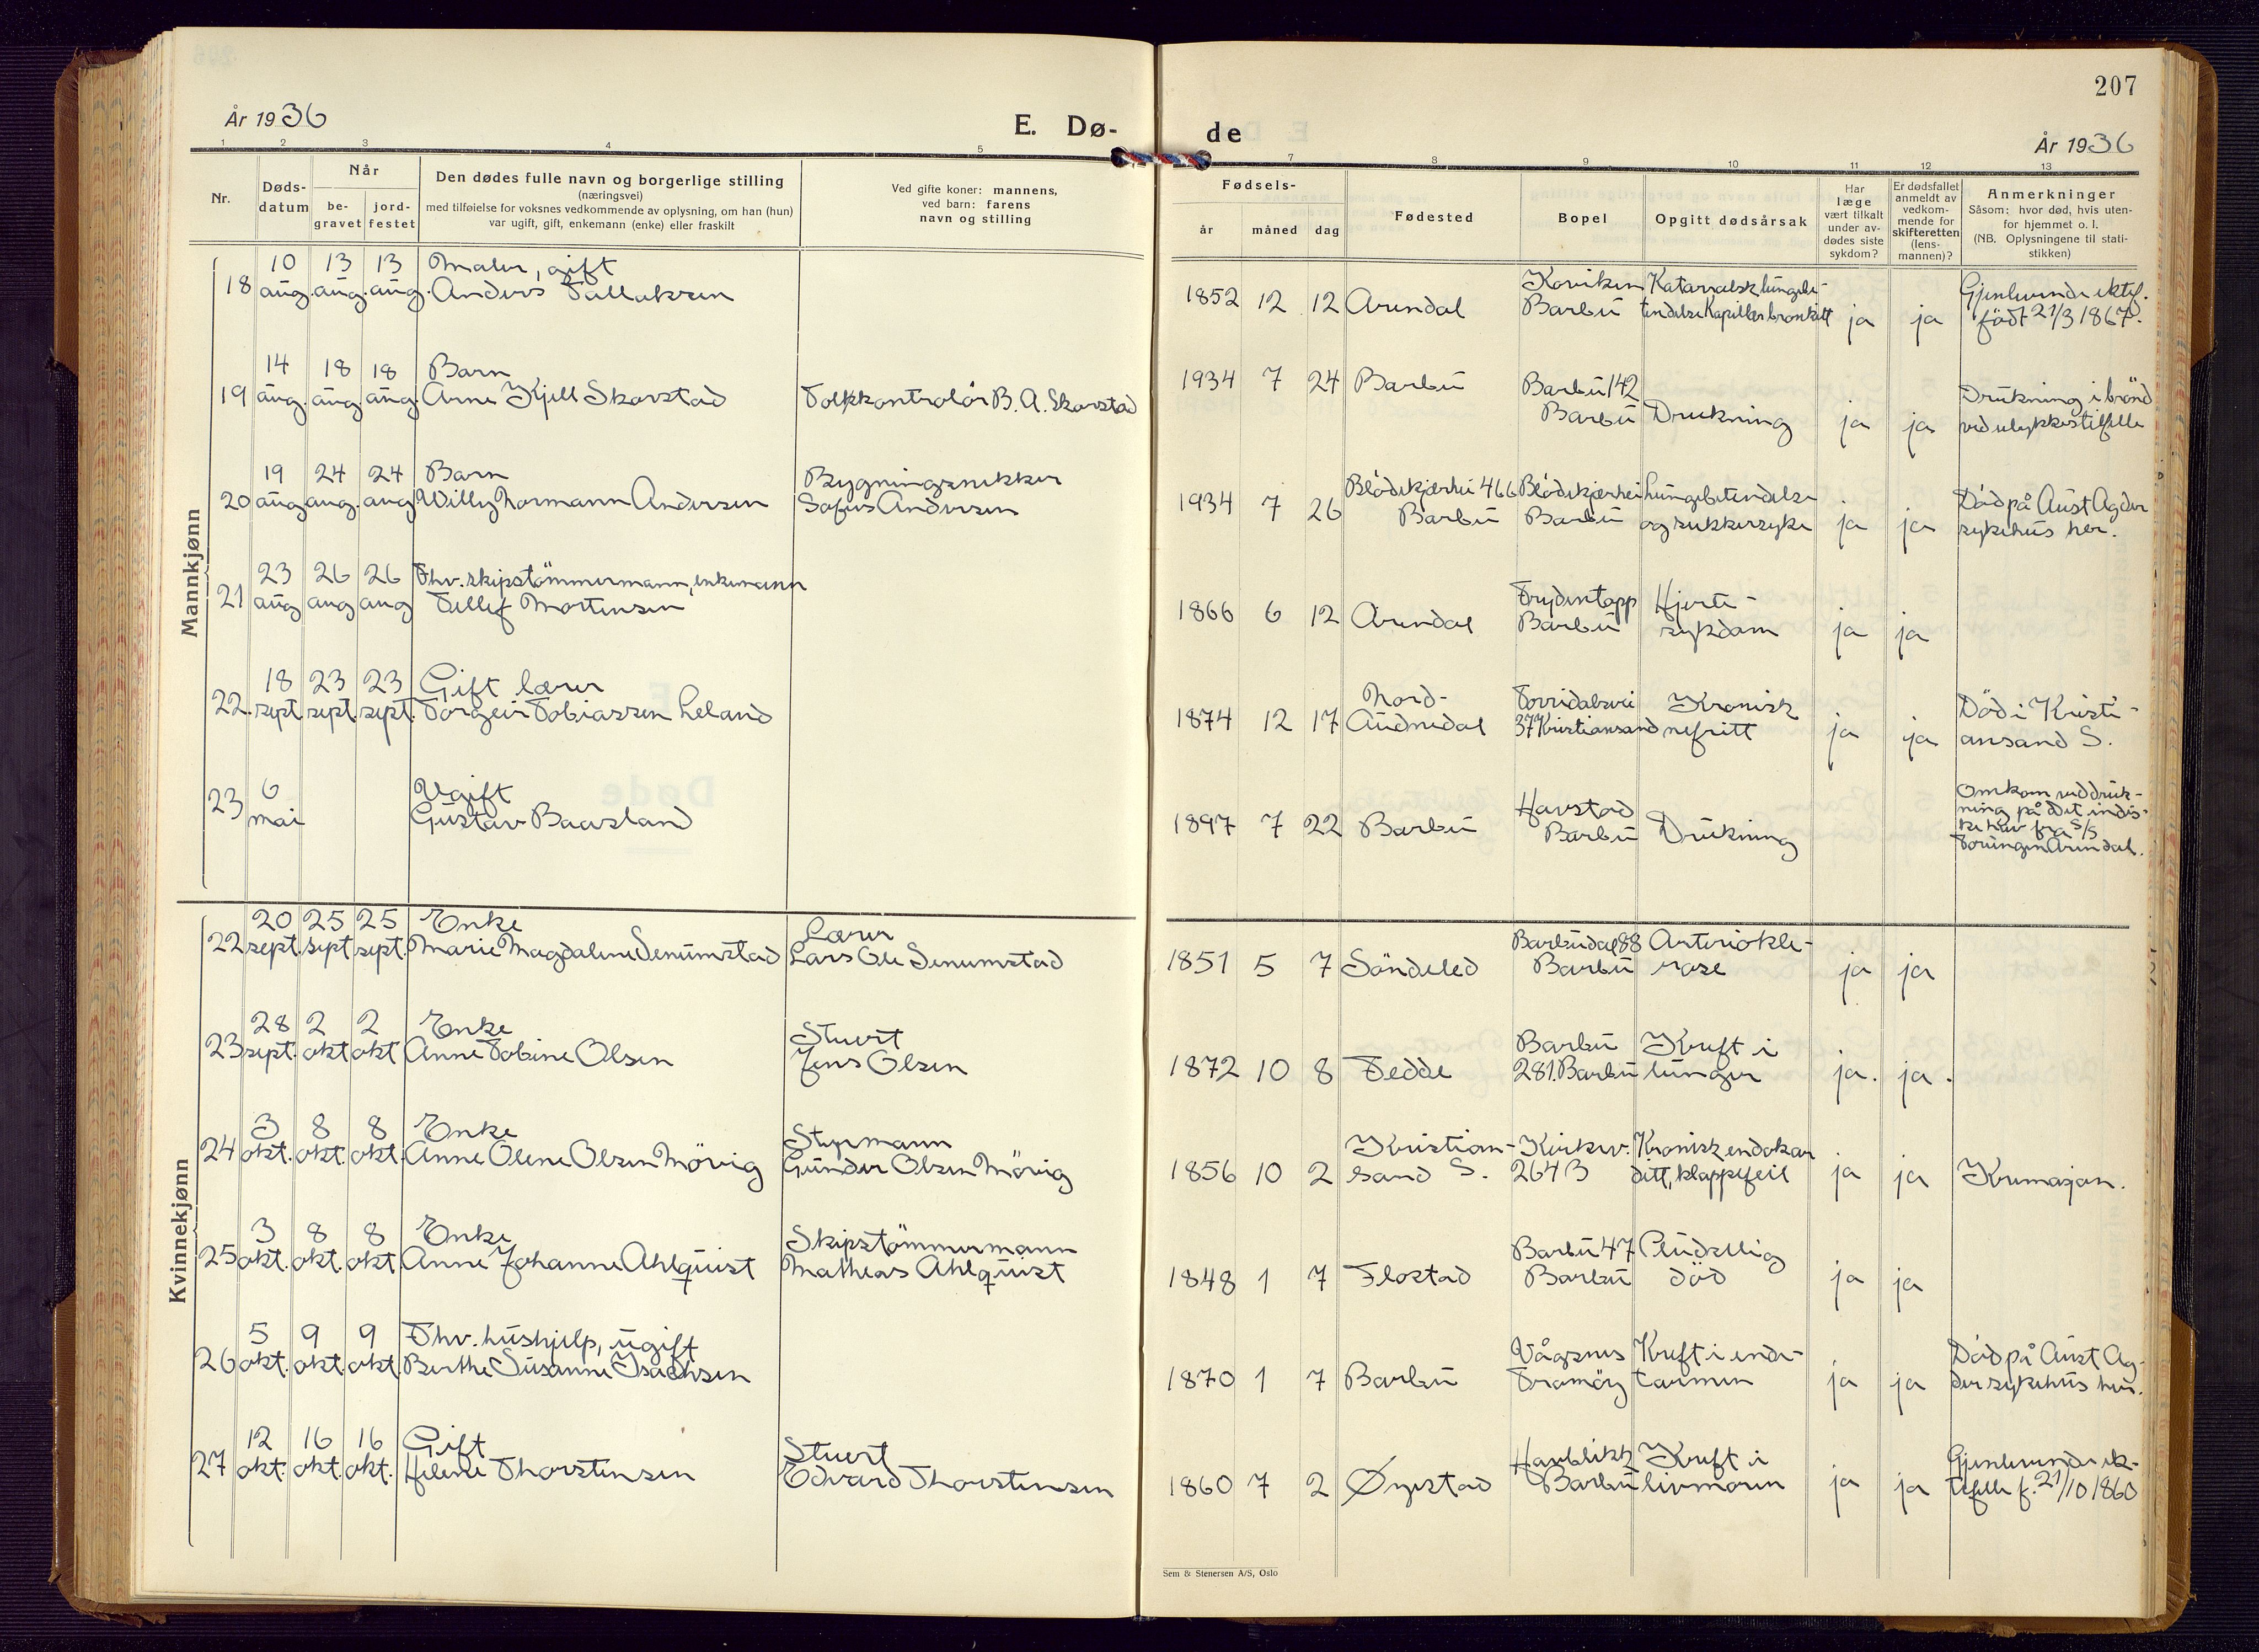 207
År 1936
E. Dø-
de
År 1936
1 2 3 4 5
7 8 9 10 11 12 13
Nr.
Døds-
datum
Når
be-
gravet
jord-
festet
Den dødes fulle navn og borgerlige stilling
(næringsvei)
med tilføielse for voksnes vedkommende av oplysning, om han (hun)
var ugift, gift, enkemann (enke) eller fraskilt
Ved gifte koner: mannens,
ved barn: farens
navn og stilling
Fødsels-
år måned dag
Fødested
Bopel
Opgitt dødsårsak
Har
læge
vært tilkalt
under av-
dødes siste
sykdom?
Er dødsfallet
anmeldt av
vedkom-
mende for
skifteretten
(lens-
mannen)?
Anmerkninger
Såsom: hvor død, hvis uten-
for hjemmet o. l.
(NB. Oplysningene til stati-
stikken)
Mannkjønn
10 13 13 Maler, gift
18 aug. aug. aug. Anders Tallaksen
Korviken Katarralsk lungebe-
1852 12 12 Arendal Barbu tendelse Kapillær bronkitt ja ja
Gjenlevende ektef.
født 21/3 1867.
14 18 18 Barn
19 aug. aug. aug. Arne Kjell Skovstad Tollkontrolør B. A. Skovstad
1934 7 24 Barbu Barbu 142
Barbu Drukning ja ja
Drukning i brønd
ved ulykkestilfelle
19 24 24 Barn Bygningsnekker
20 aug. aug. aug Willy Normann Andersen Sofus Andersen
Blødekjærhei 466 Blødekjærhei Lungebetendelse
1934 7 26 Barbu Barbu og sukkersyke ja ja
Død på Aust Agder
sykehus her.
23 26 26 Fhv. skipstømmermann, enkemann
21 aug aug aug Tellef Mortensen
Frydentopp Hjerte-
1866 6 12 Arendal Barbu sykdom ja ja
18 23 23 Gift lærer
22. sept. sept. sept. Torgeir Tobiassen Leland
Nord- Torridalsvei Kronisk
1874 12 17 Audnedal 37 Kristiansand nefritt ja ja
Død i Kristi-
ansand S.
6 Ugift
23 mai Gustav Baasland
Havstad
1897 7 22 Barbu Barbu Drukning
Omkom ved druk-
ning på det indis-
ke hav fra S/S
Toungen Arendal.
Kvinnekjønn
20 25 25 Enke Lærer
22 sept. sept. sept. Marie Magdalene Senumstad Lars Ole Senumstad
Barbudal 88 Arteriokle-
1851 5 7 Søndeled Barbu rose ja ja
28 2 2 Enke Stuert
23 sept. okt okt Anne Tobine Olsen Jens Olsen
Barbu Kreft i
1872 10 8 Fedde 281. Barbu lunger ja. ja.
3 8 8 Enke Styrmann
24 okt. okt. okt. Anne Olene Olsen Mørvig Gunder Olsen Mørvig
Kristian- Kirkev. Kronisk endokar
1856 10 2 sand S. 264 B ditt, klappefeil ja ja Kremasjon.
3 8 8 Enke Skipstømmermann
25 okt. okt. okt. Anne Johanne Ahlquist Mathias Ahlquist
Barbu 47 Pludselig
1848 1 7 Flostad Barbu død ja ja
5 9 9 Fhv. hushjelp, ugift
26 okt. okt. okt. Berthe Susanne Isachsen
Vågsnes Kreft i ende-
1870 1 7 Barbu Tromøy tarmen ja ja
Død på Aust Ag-
der sykehus her.
12 16 16 Gift Stuert
27 okt. okt. okt. Helene Thorstensen Edvard Thorstensen
Havblikk Kreft i
1860 7 2 Øyestad Barbu livmoren ja ja
Gjenlevende ek-
tefelle f. 21/10 1860
Sem & Stenersen A/S, Oslo